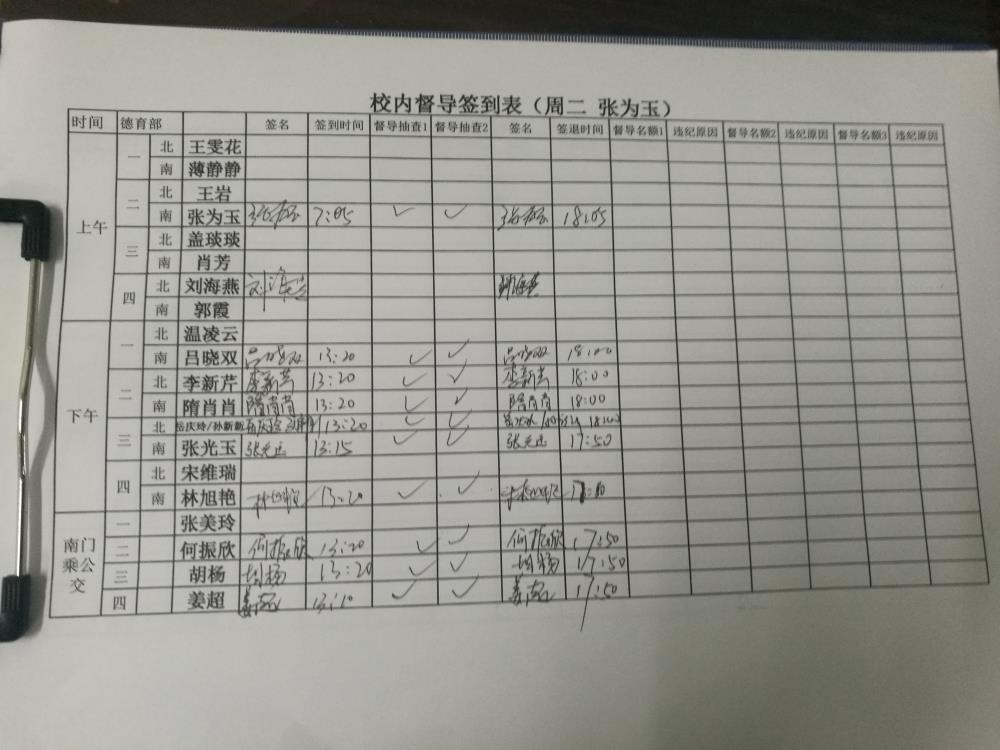 校内督导签到表（周二 张为玉）
时间 德育部 签名 签到时间 督导抽查1 督导抽查2 签名 签退时间 督导名额1 违纪原因 督导名额2 违纪原因 督导名额3 违纪原因
上午 一 北 王雯花
南 薄静静
二 北 王岩
南 张为玉 张为玉 7:05 ✓ ✓ 张为玉 18:05
三 北 盖琰琰
南 肖芳
四 北 刘海燕 刘海燕 刘海燕
南 郭霞
下午 一 北 温凌云
南 吕晓双 吕晓双 13:20 ✓ ✓ 吕晓双 18:00
二 北 李新芹 李新芹 13:20 ✓ ✓ 李新芹 18:00
南 隋肖肖 隋肖肖 13:20 ✓ ✓ 隋肖肖 18:00
三 北 岳庆玲/孙新新 岳庆玲 13:20 ✓ ✓ 18:00
南 张光玉 张光玉 13:15 ✓ ✓ 张光玉 17:50
四 北 宋维瑞
南 林旭艳 林旭艳 13:20 ✓ ✓ 林旭艳
南门乘公交 一 张美玲
二 何振欣 何振欣 13:20 ✓ ✓ 何振欣 17:50
三 胡杨 胡杨 13:20 ✓ ✓ 胡杨 17:50
四 姜超 姜超 13:10 ✓ ✓ 姜超 17:50